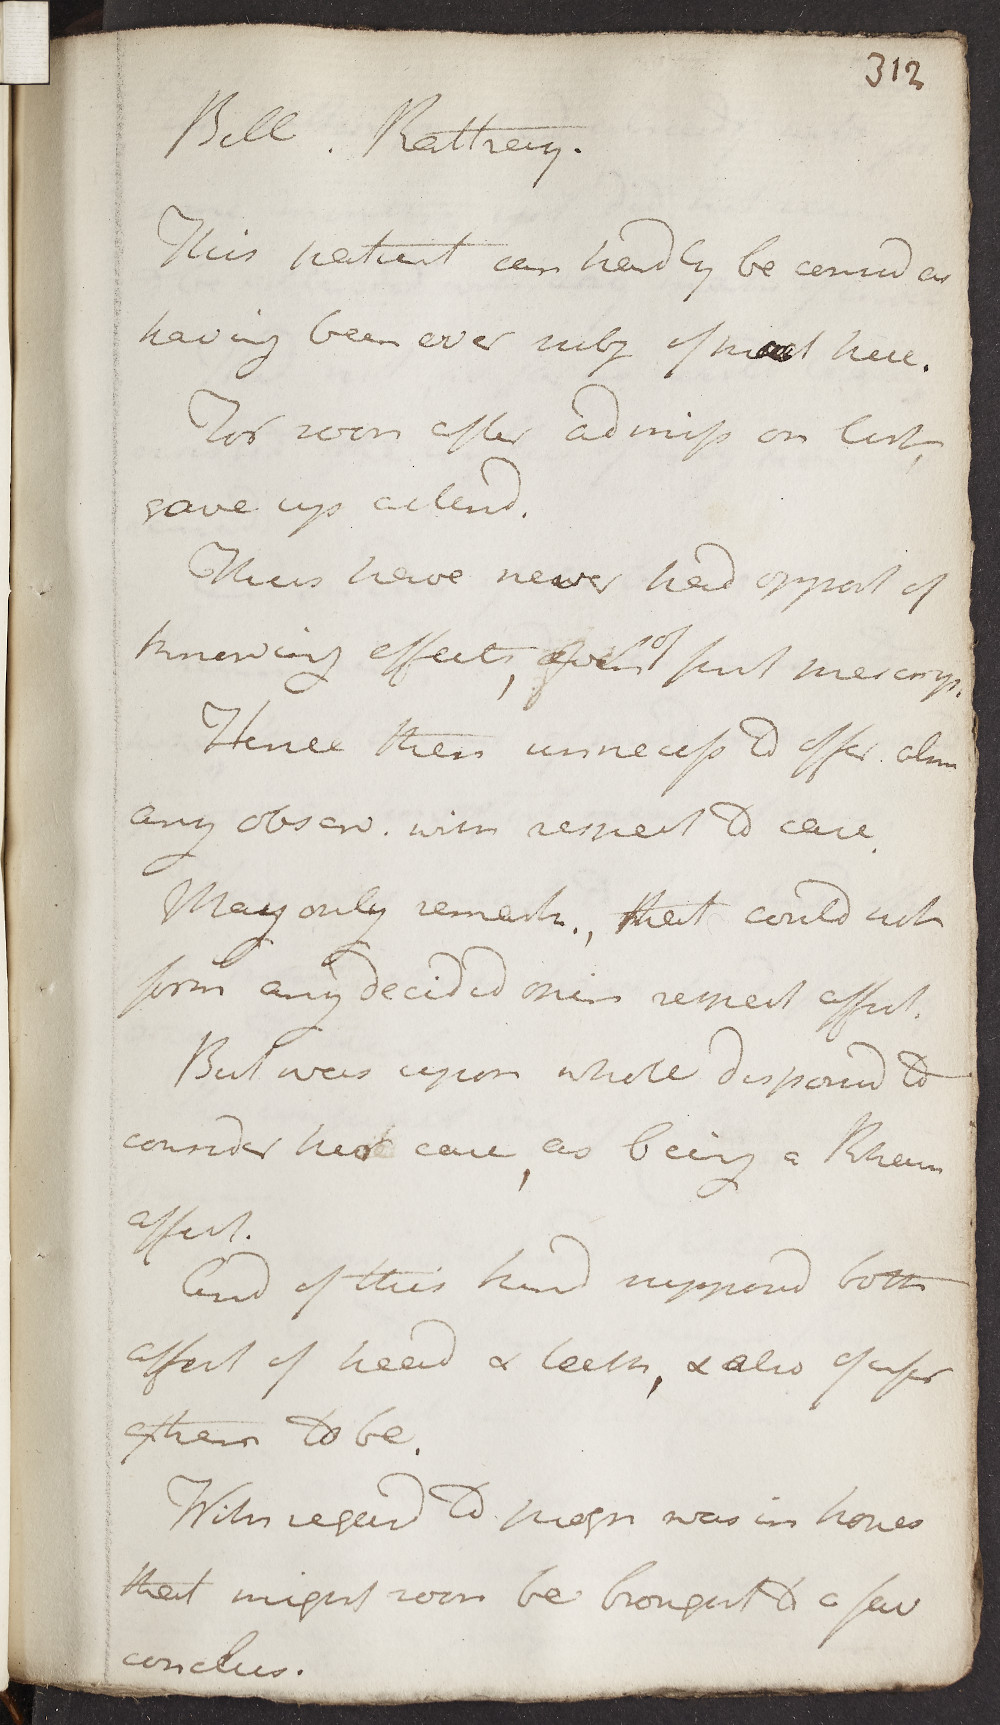 312
Bell. Rattray.
This patient can hardly be consid as
having been ever subj of here.
For soon after admiss on list,
gave up attend.
Thus have never had opport of
knowing effects, of first prescrip.
Hence then unnecess to offer
any observ. with respect to case.
May only remark., that could not
form any decided opin respect affect.
But was upon whole disposed to
consider her case, as being a Rheum
affect.
And of this kind supposed both
affect of head & teeth, & also of
extrem to be.
With regard to progn was in hopes
that might soon be brought to a fav
conclus.